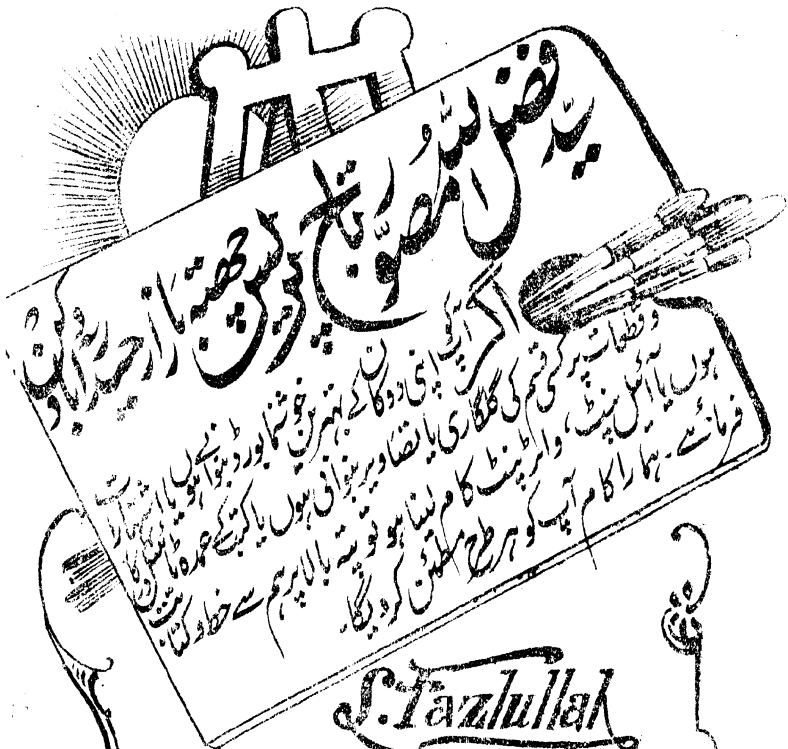 سید فضل اللہ مصور تاج پریس چھتہ بازار حیدرآباد دکن
اگر آپ کو اپنی دوکان کے بہترین خوشنما بورڈ بنوانے ہوں یا
و قطعات پر کسی قسم کی گلکاری یا تصاویر بنوانی ہوں یا کتب کے عمدہ ٹائیٹل
ہوں یا آئیل پنٹ، واٹر پنٹ کام لینا ہو تو پتہ بالا پر ہم سے خط و کتابت
فرمائیے۔ ہمارا کام آپ کو ہر طرح مطمئن کر دیگا۔
S. Fazlullah